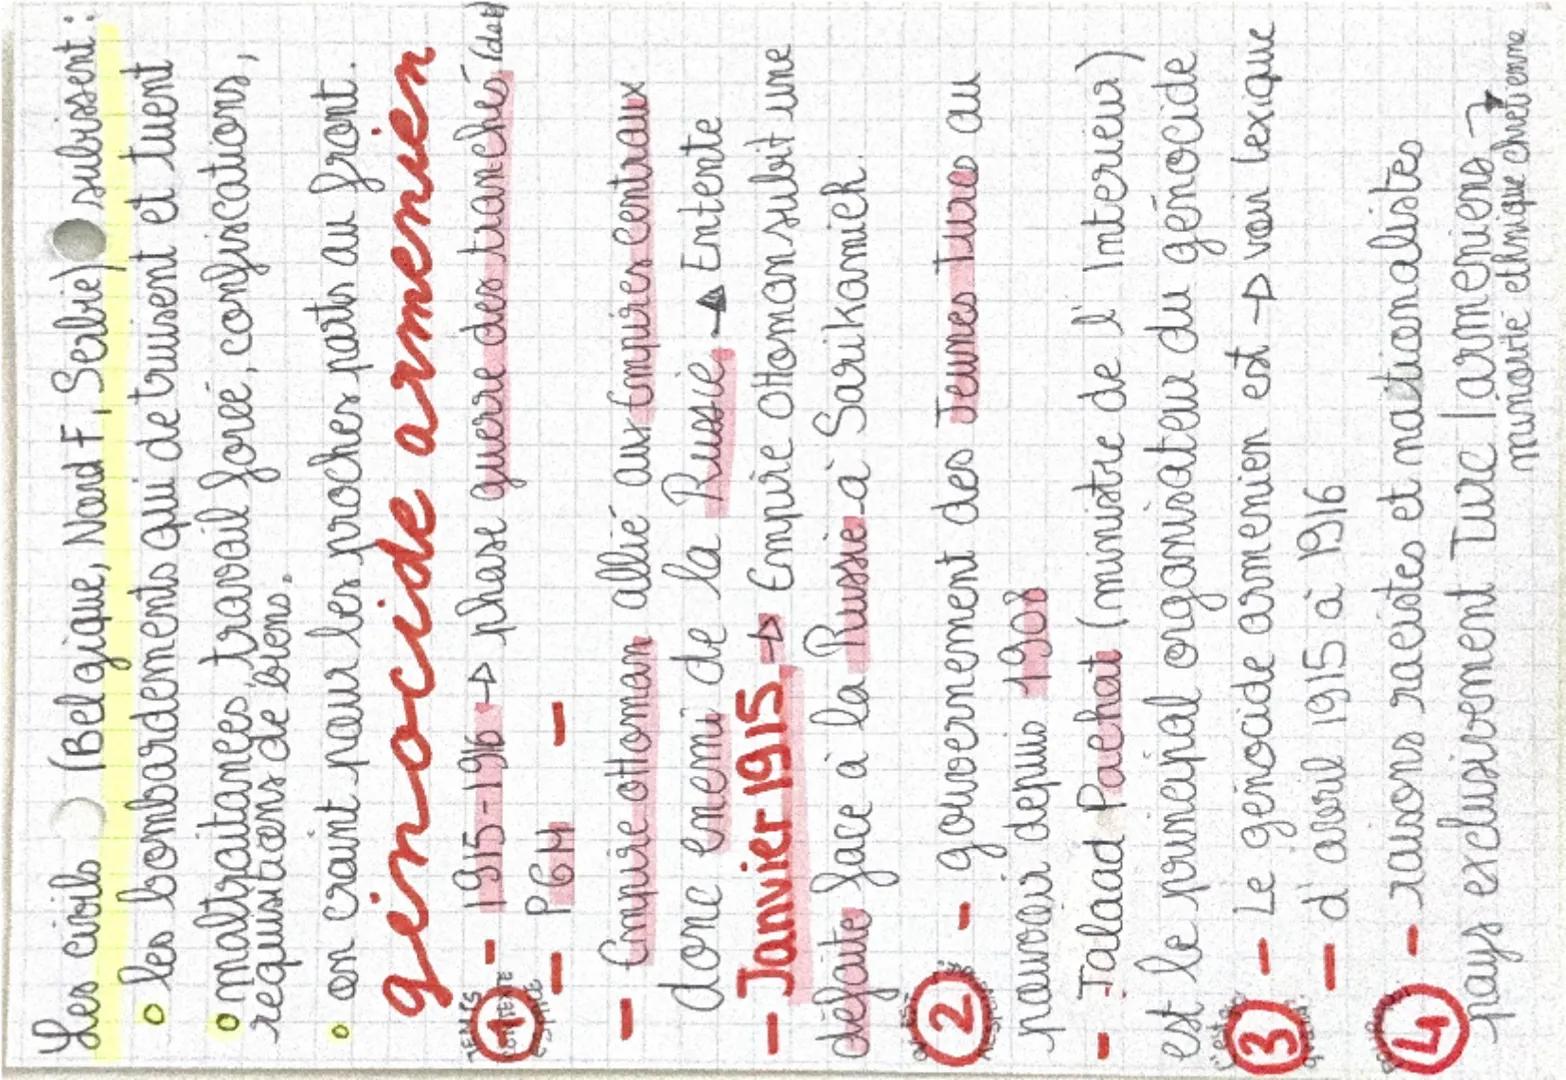 Les civils (Belgique, Nord F, Serbie) subissent :
• les bombardements qui detruisent et tuent
• maltraitances, travail forcé, confiscations,
requisitions de biens.
• on craint pour les proches partis au front.
génocide armenien
1 - 1915-1916 → phase guerre des tranchés
- PGM -
- Empire ottoman allié aux Empires centraux
donc enemi de la Russie → Entente
- Janvier 1915 → Empire ottoman subit une
défaite face à la Russie à Sarikamich.
2 - gouvernement des Jeunes Turcs au
pouvoir depuis 1908
- Talaad Pachat (ministre de l'Interieur)
est le principal organisateur du génocide
3 - Le génocide armenien est → voir lexique
- d'avril 1915 à 1916
4 - raisons racistes et nationalistes
pays exclusivement Turc / armeniens →
minorité ethnique chretienne